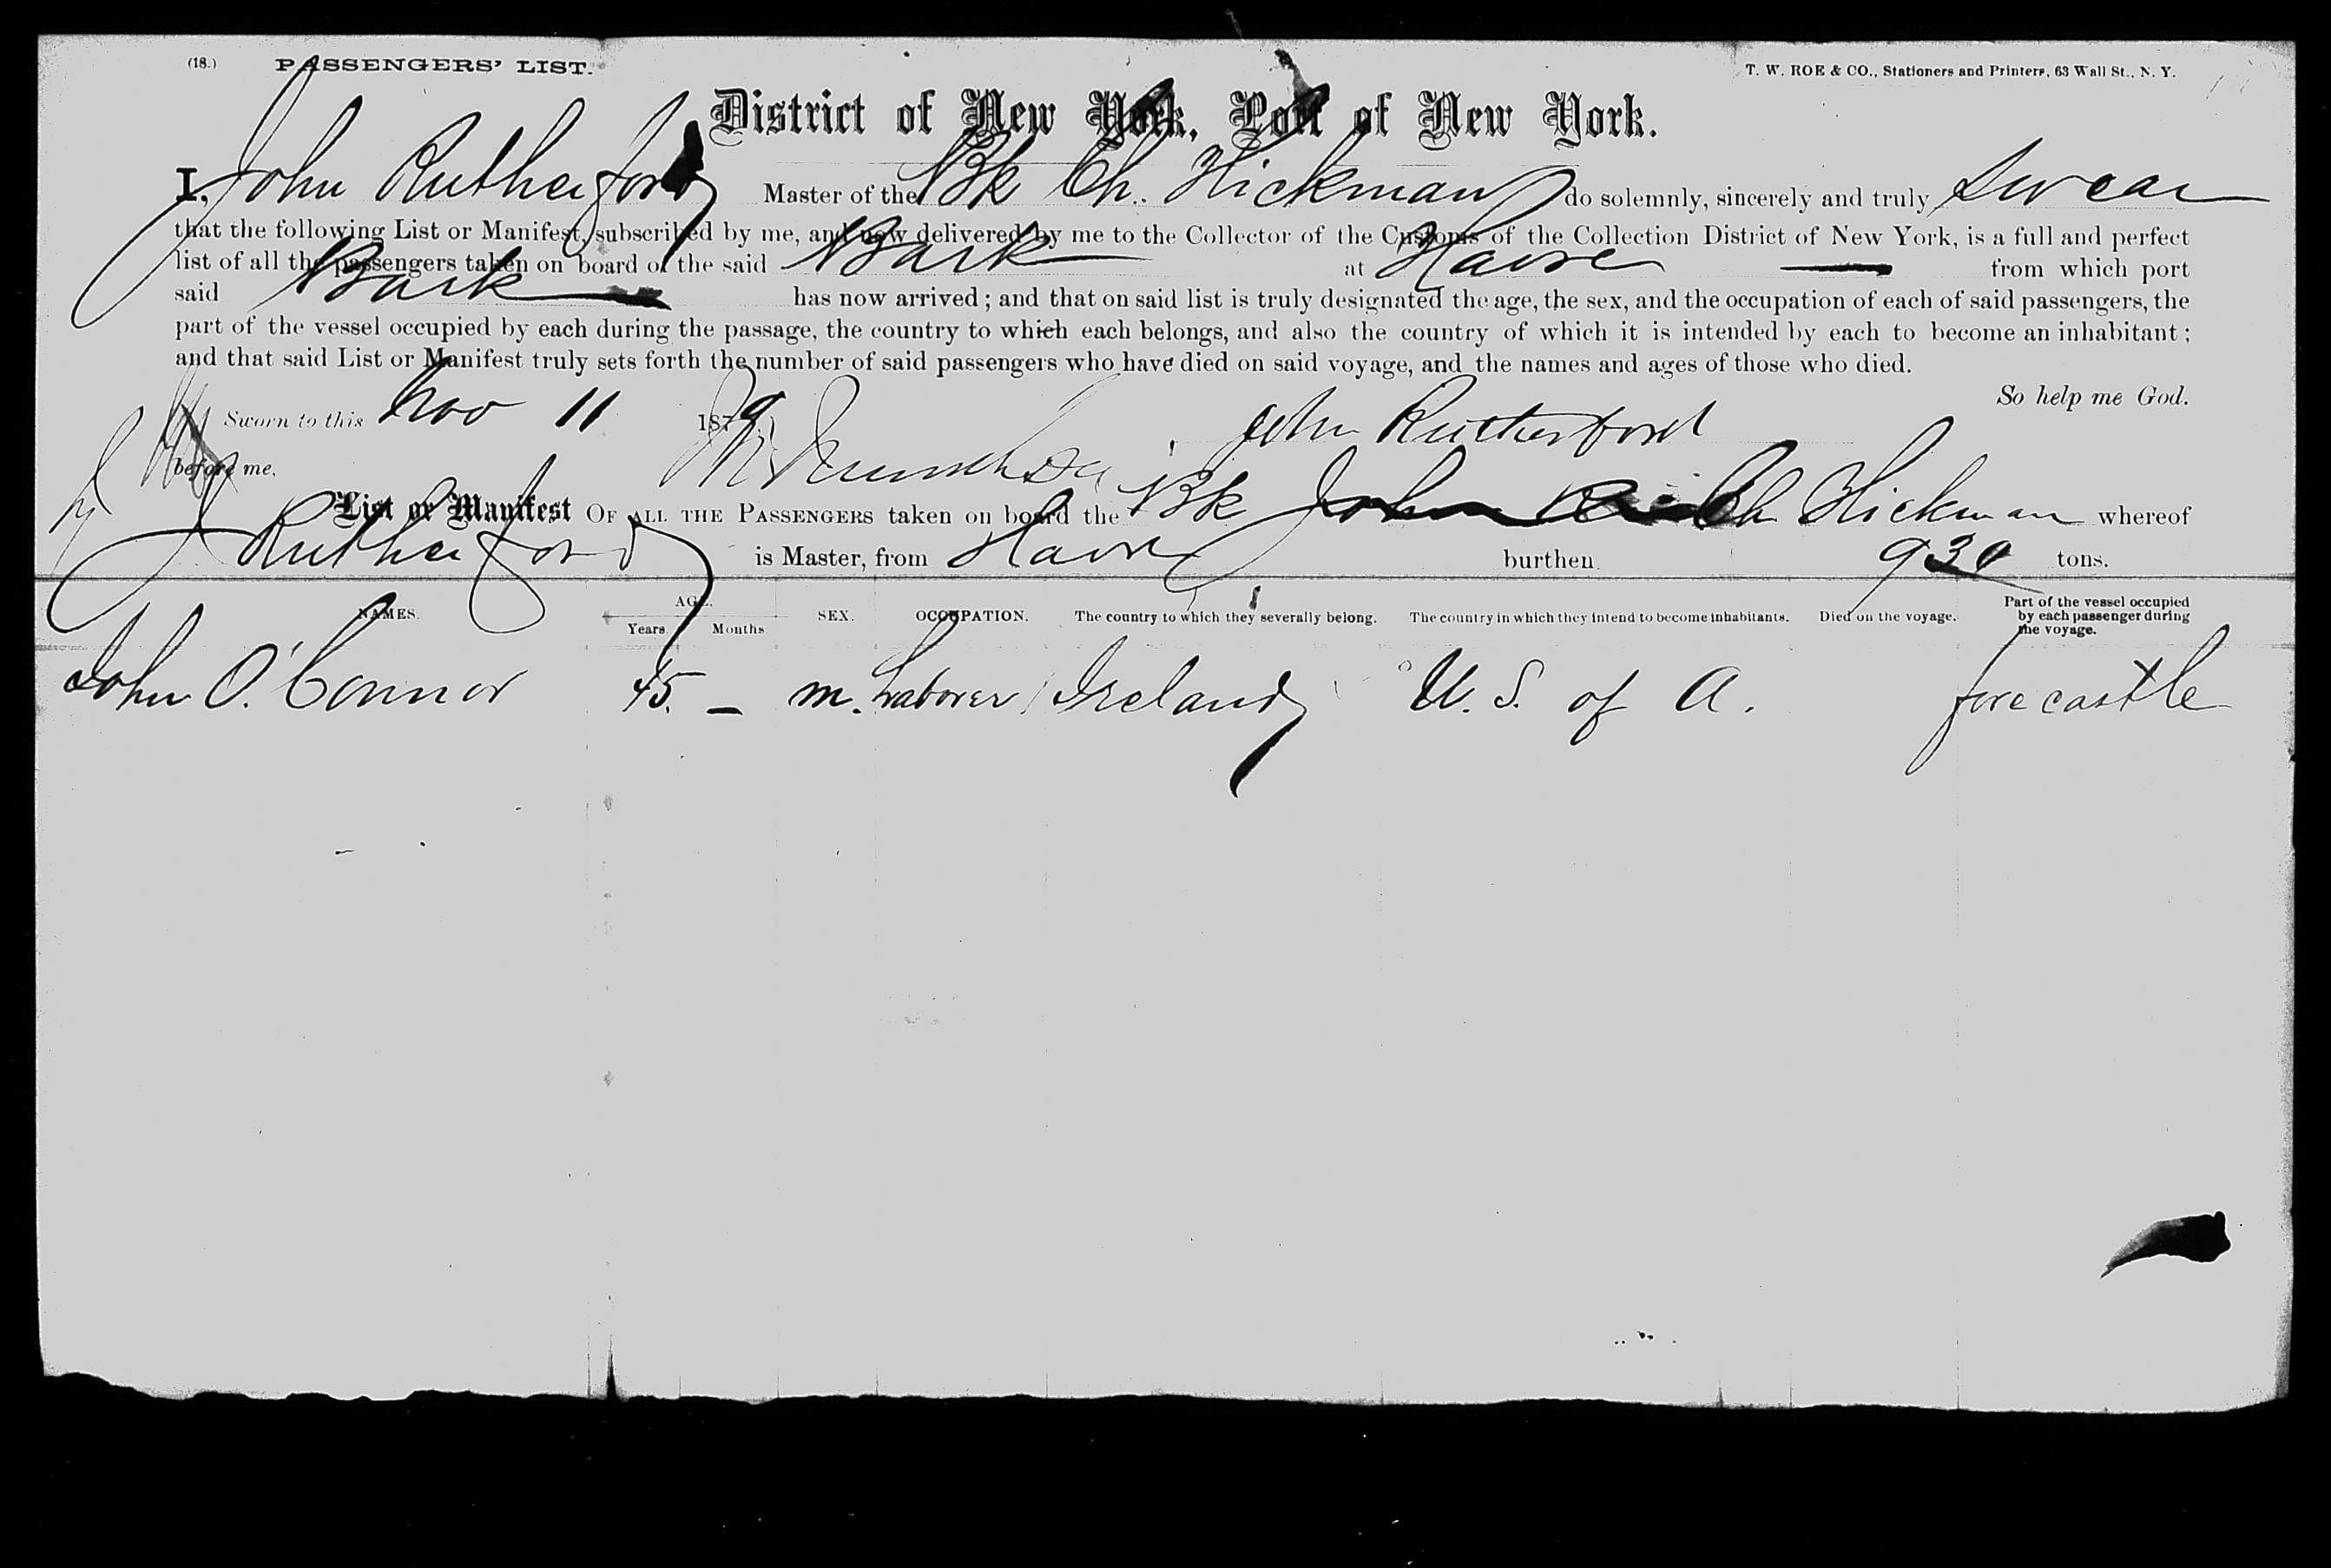 (18.) PASSENGERS' LIST. T. W. ROE & CO., Stationers and Printers, 63 Wall St., N. Y.
District of New York, Port of New York.
I, John Rutherford Master of the Bk Ch. Hickman do solemnly, sincerely and truly Swear
that the following List or Manifest, subscribed by me, and now delivered by me to the Collector of the Customs of the Collection District of New York, is a full and perfect
list of all the passengers taken on board of the said Bark at Havre from which port
said Bark has now arrived; and that on said list is truly designated the age, the sex, and the occupation of each of said passengers, the
part of the vessel occupied by each during the passage, the country to which each belongs, and also the country of which it is intended by each to become an inhabitant;
and that said List or Manifest truly sets forth the number of said passengers who have died on said voyage, and the names and ages of those who died.
So help me God.
Sworn to this Nov 11 1879 John Rutherford
before me,
List or Manifest OF ALL THE PASSENGERS taken on board the Bk John Ch Hickman whereof
J Rutherford is Master, from Havre burthen 930 tons.
NAMES. AGE. Years. Months SEX. OCCUPATION. The country to which they severally belong. The country in which they intend to become inhabitants. Died on the voyage. Part of the vessel occupied by each passenger during the voyage.
John O'Connor 45. – m. Laborer Ireland U. S. of A. forecastle